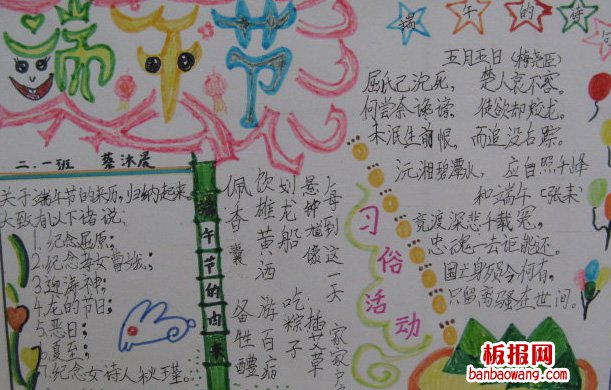 端午节
端午的诗句
二.一班 蔡沐晨
关于端午节的来历,归纳起来,
大致有以下诸说:
1.纪念屈原;
2.纪念孝女曹娥;
3.迎涛神;
4.龙的节日;
5.恶日;
6.夏至;
7.纪念女诗人秋瑾。
端午节的由来
习俗活动
每到这一天 家家户
悬钟馗像 插艾草
划龙船 吃粽子
饮雄黄酒 游百病
佩香囊 备牲醴
五月五日(梅尧臣)
屈氏已沈死, 楚人哀不容。
何尝奈谗谤, 徒欲却蛟龙。
未泯生前恨, 而追没后踪。
沅湘碧潭水, 应自照千峰
和端午 (张耒)
竞渡深悲千载冤,
忠魂一去讵能还。
国亡身殒今何有,
只留离骚在世间。
板报网
banbaowang.com